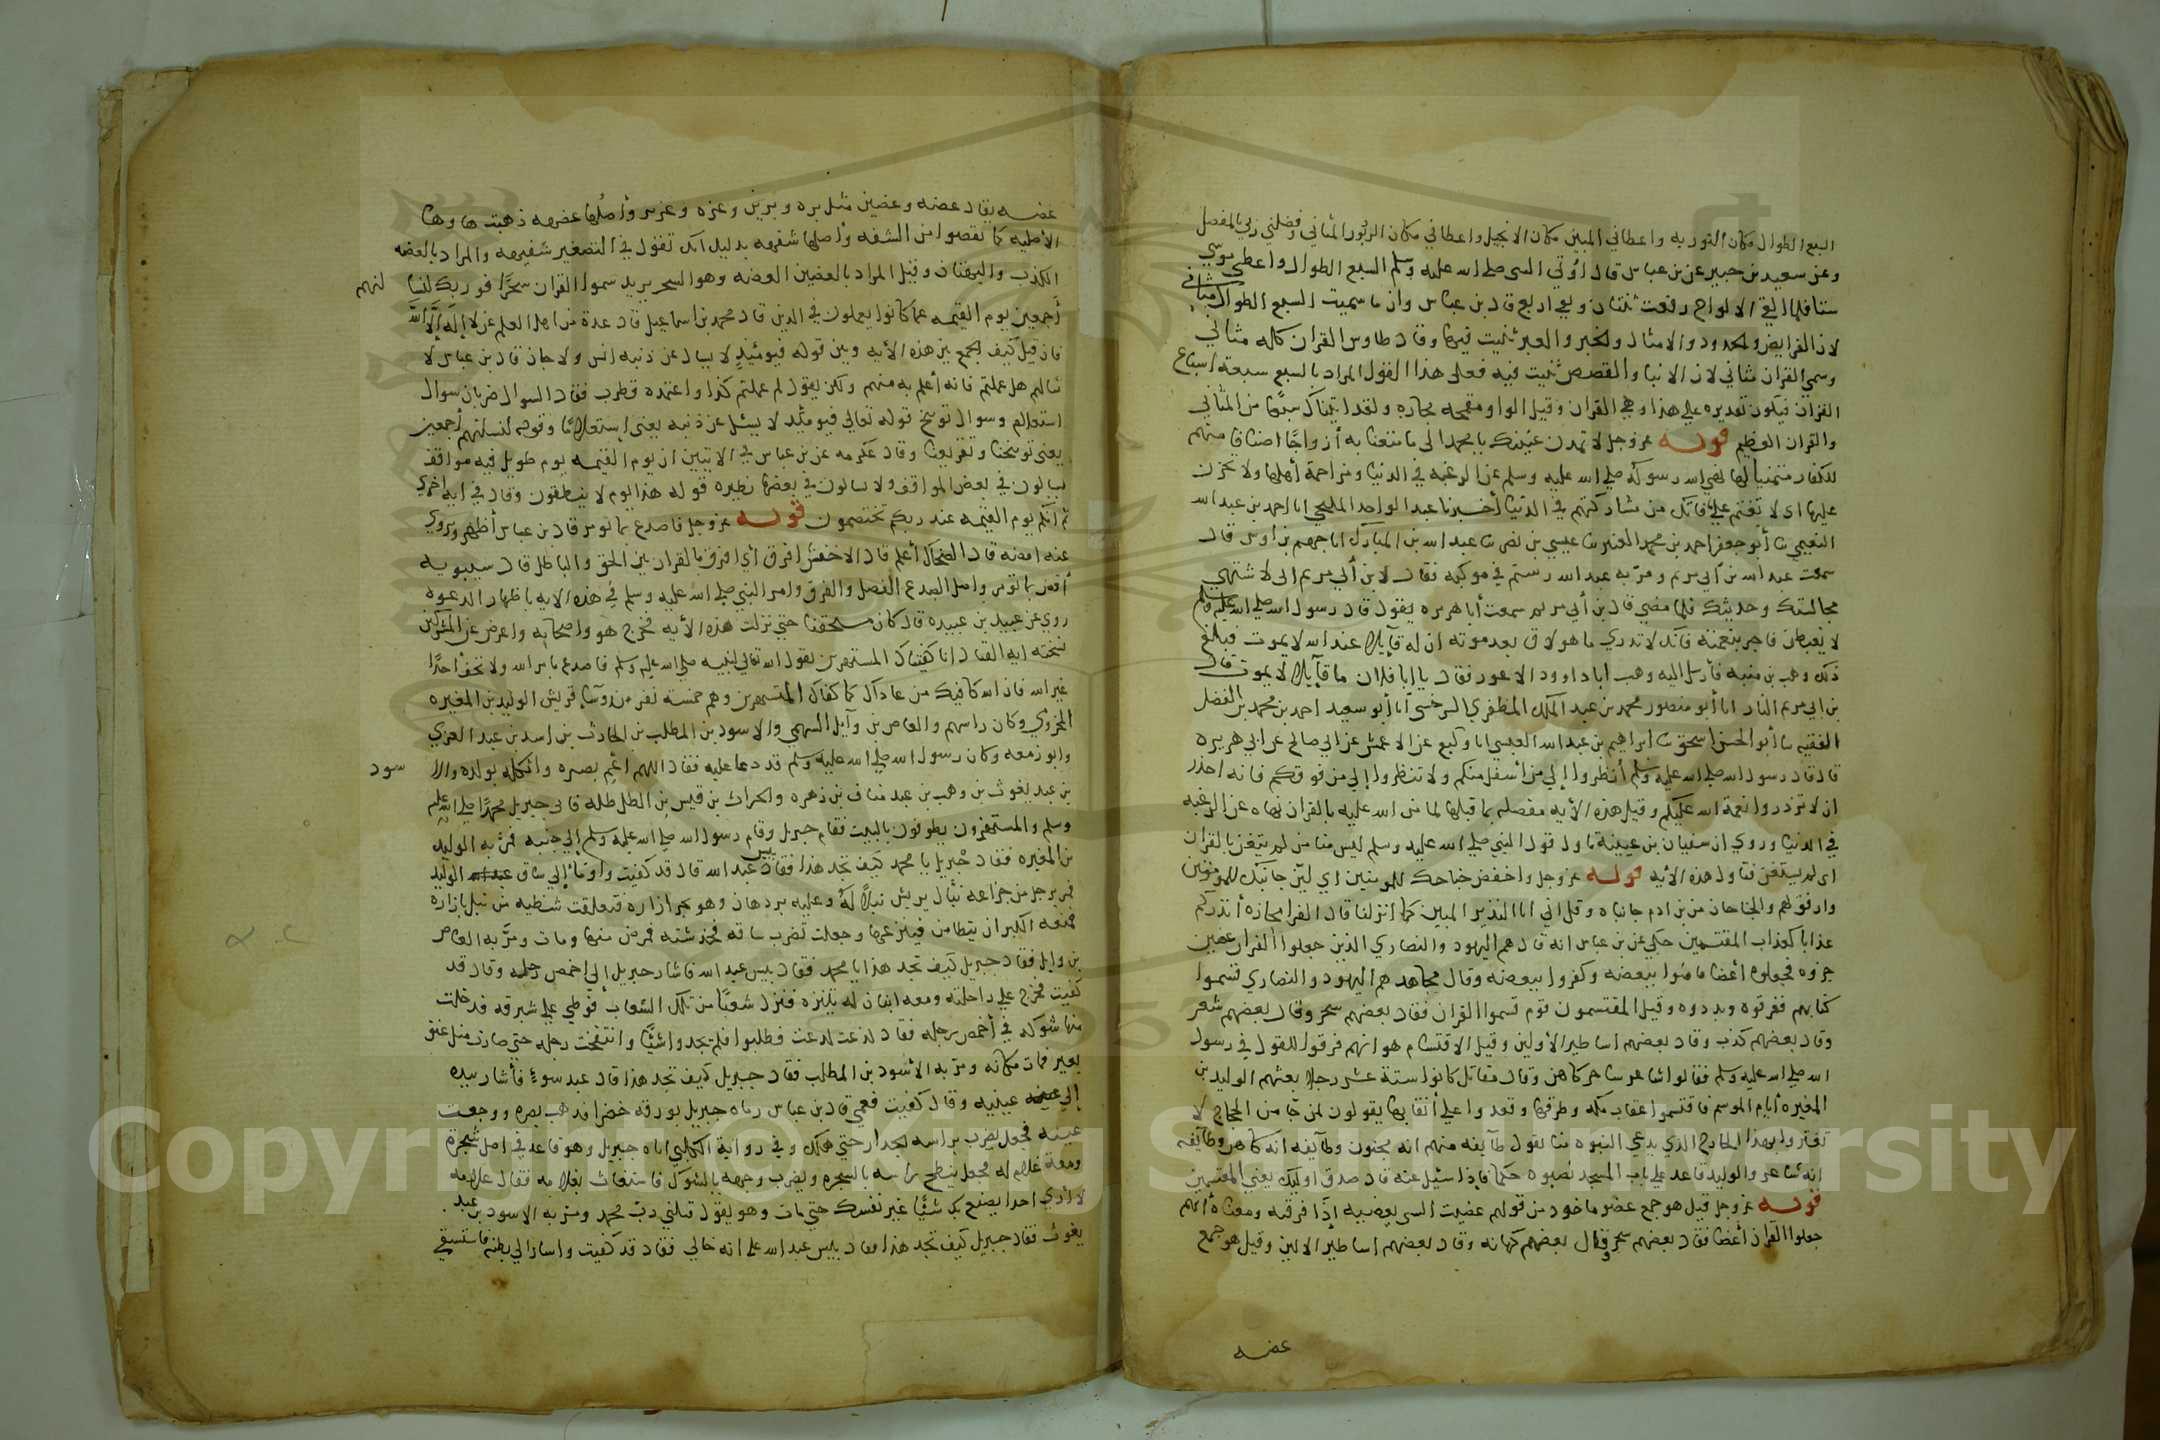 السبع الطوال مكان التوريه واعطاني المبين مكان الانجيل واعطاني مكان الزبور المثاني وفضلني ربي بالمفصل
وعن سعيد بن جبير عن بن عباس قال اوتي النبي صلي الله عليه وسلم السبع الطوال واعطي موسي
ستا فلما القي الالواح رفعت ثنتان وبقي اربع قال بن عباس وان ما سميت السبع الطوال مثاني
لان الفرايض والحدود والامثال والخبر والعبر ثنيت فيها وقال طاوس القران كله مثاني
وسمي القران مثاني لان الانبا والقصص ثنيت فيه فعلي هذا القول المراد بالسبع سبعة اسباع
القران فيكون تقديره علي هذا وهي القران وقيل الواو مقحمه مجازه ولقد اتيناك سبعا من المثاني
والقران العظيم قوله عز وجل لا تمدن عينيك يا محمد الي ما متعنا به أزواجًا اصنافا منهم
للكفار متمنيا لها نهي الله رسوله صلي الله عليه وسلم عن الرغبه في الدنيا ومزاحمة أهلها ولا تحزن
عليهم اي لا تغتم علي ما فاتك من مشاركتهم في الدنيا أخبرنا عبد الواحد المليحي انا احمد بن عبد الله
النعيمي نا أبو جعفر احمد بن محمد العنبري نا عيسي بن نصر نا عبد الله بن المبارك انا جهم بن أوس قال
سمعت عبد الله بن أبي مريم ومر به عبد الله رستم في موكبه فقال لابن أبي مريم اني لاشتهي
مجالستك وحديثك فلما مضي قال بن أبي مريم سمعت أبا هريره يقول قال رسول الله صلي الله عليه وسلم
لا يغبطن فاجر بنعمته فانك لا تدري ما هو لاق بعد موته ان له قآتلا عند الله لا يموت فبلغ
ذلك وهب بن منبه فأرسل اليه وهب ابا داوود الاعور فقال يا ابا فلان ما قآتلا لا يموت قال
بن ابي مريم النار انا أبو منصور محمد بن عبد الملك المظفري السرخسي انا أبو سعيد احمد بن محمد بن الفضل
الفقيه نا أبو الحسن اسحق نا ابراهيم بن عبد الله العبسي انا وكيع عن الاعمش عن ابي صالح عن ابي هريره
قال قال رسول الله صلي الله عليه وسلم أنظروا إلي من أسفل منكم ولا تنظروا إلي من فوقكم فانه اجدر
ان لا تزدروا نعمة الله عليكم وقيل هذه الأيه متصله بما قبلها لما من الله عليه بالقران نهاه عن الرغبه
في الدنيا وروي ان سفيان بن عيينة تاول قول النبي صلي الله عليه وسلم ليس منا من لم يتغن بالقران
اي لم يستغن فتاول هذه الأيه قوله عز وجل واخفض جناحك للمومنين اي ليّن جانبك للمومنين
وارفق بهم والجناحان من بن ادم جانباه وقل اني انا النذير المبين كما انزلنا قال الفرا مجازه أنذركم
عذابا كعذاب المقتسمين حكي عن بن عباس انه قال هم اليهود والنصاري الذين جعلوا القران عضين
جزوه فجعلوه أعضا فامنوا ببعضه وكفروا ببعضه وقال مجاهد هم اليهود والنصاري قسموا
كتابهم ففرقوه وبددوه وقيل المقتسمون قوم قسموا القران فقال بعضهم سحر وقال بعضهم شعر
وقال بعضهم كذب وقال بعضهم اساطير الأولين وقيل الاقتسام هو انهم فرقوا للقول في رسول
الله صلي الله عليه وسلم فقالوا شاعر ساحر كاهن وقال مقاتل كانوا ستة عشر رجلا بعثهم الوليد بن
المغيره أيام الموسم فاقتسموا عقاب مكه وطرقها وقعدوا علي أنقابها يقولون لمن جا من الحجاج لا
تغتروا بهذا الخارج الذي يدعي النبوه منا يقول طآيفه منهم انه مجنون وطآيفه انه كاهن وطآيفه
انه شاعر والوليد قاعد علي باب المسجد نصبوه حكما فإذا سئل عنه قال صدق اوليك يعني المقتسمين
قوله عز وجل قيل هو جمع عضو ماخوذ من قولهم عضيت الشي بعضيه إذا فرقته ومعناه أنهم
جعلوا القران أعضا فقال بعضهم سحر وقال بعضهم كهانه وقال بعضهم اساطير الاولين وقيل هو جمع
عضه
عضه يقال عضه وعضين مثل بره وبرين وعزه وعزين وأصلها عضهه ذهبت ها وها
الأصليه كما نقصوا من الشفه وأصلها شفهه بدليل انك تقول في التصغير شفيهه والمراد بالعضه
الكذب والبهتان وقيل المراد بالعضين العضه وهو السحر يريد سموا القران سحرًا فوربك لنسا لنهم
أجمعين يوم القيمه عما كانوا يعملون في الدين قال محمد بن اسماعيل قال عدة من اهل العلم عن لا إله إلا الله
فان قيل كيف الجمع بين هذه الأيه وبين قوله فيومئذٍ لا يسال عن ذنبه انس ولا جان قال بن عباس لا
نسالهم هل عملتم فانه أعلم به منهم ولكن يقول لم عملتم كذا واعتمده قطرب فقال السوال ضربان سوال
استعلام وسوال توبيخ قوله تعالي فيومئذ لا يسئل عن ذنبه يعني إستعلامًا وقوله لنسئلنهم أجمعين
يعني توبيخا وتقريعا وقال عكرمه عن بن عباس في الايتين ان يوم القيمه يوم طويل فيه مواقف
يسالون في بعض المواقف ولا يسالون في بعضها نظيره قوله هذا يوم لا ينطقون وقال في ايه اخري
ثم انكم يوم القيمه عند ربكم تختصمون قوله عز وجل فاصدع بما تومر قال بن عباس أظهر ويروي
عنه امضه قال الضحاك أعلم قال الاخفش افرق أي افرق بالقران بين الحق والباطل قال سيبويه
أقض بما تومر واصل الصدع الفصل والفرق وامر النبي صلي الله عليه وسلم في هذه الايه باظهار الدعوه
روي عن عبيد بن عبيده قال كان مستخفيا حتي نزلت هذه الأيه فخرج هو واصحابه واعرض عن المشركين
نسخته ايه القتال انا كفيناك المستهزين يقول الله تعالي لنبيه صلي الله عليه وسلم فاصدع بامر الله ولا تخف احدًا
غير الله فان الله كافيك من عاداك كما كفاك المستهزين وهم خمسه نفر من روسآ قريش الوليد بن المغيره
المخزومي وكان راسهم والعاص بن وآيل السهمي والاسود بن المطلب بن الحارث بن اسد بن عبد العزي
وابو زمعه وكان رسول الله صلي الله عليه وسلم قد دعا عليه فقال اللهم اعم بصره واثكله بولده والا سود
بن عبد يغوث بن وهب بن عبد مناف بن زهره والحراث بن قيس بن الطلاطله فاتي جبريل محمدًا صلي الله عليه
وسلم والمستهزون يطوفون بالبيت فقام جبريل وقام رسول الله صلي الله عليه وسلم إلي جنبه فمر به الوليد
بن المغيره فقال جبريل يا محمد كيف تجد هذا فقال بيس عبد الله قال قد كفيت وأومأ إلي ساق الوليد
فمر برجل من خزاعه نبال يريش نبلاً له وعليه بردهان وهو يجر ازاره فتعلقت شظيه من نبل بازاره
فمنعه الكبر ان يتطامن فينزعها وجعلت تضرب ساقه فخدشته فمرض منها ومات ومرَّ به العاص
بن وايل فقال جبريل كيف تجد هذا يا محمد فقال بيس عبد الله فاشار جبريل إلي اخمص رجله وقال قد
كفيت فخرج علي راحلته ومعه ابنان له يتنزه فنزل شعبًا من تلك الشعاب فوطي علي شبرقه فدخلت
منها شوكه في أخمص رجله فقال لدغت لدغت فطلبوا فلم تجدوا شيًّا وانتفخت رجله حتي صارت مثل عنق
بعير فمات مكانه ومر به الأسود بن المطلب فقال جبريل كيف تجد هذا قال عبد سوءٍ فأشار بيده
إلي عينيه وقال كفيت فعمي قال بن عباس رماه جبريل بورقه خضرا فذهب بصره ووجعت
عينه فجعل يضرب براسه لجدار حتي هلك وفي رواية الكلبي اتاه جبريل وهو قاعد في اصل شجرة
ومعه غلام له فجعل ينطح راسه بالشجره ويضرب وجهه بالشوك فاستغاث بغلامه فقال غلامه
لا أري احدا يصنع بك شيًّا غير نفسك حتي مات وهو يقول قتلني ربّ محمد ومر به الاسود بن عبد
يغوث فقال جبريل كيف تجد هذا فقال بيس عبد الله علي انه خالي فقال قد كفيت واشار الي بطنه فاستسقي
Copyright © King Saud University